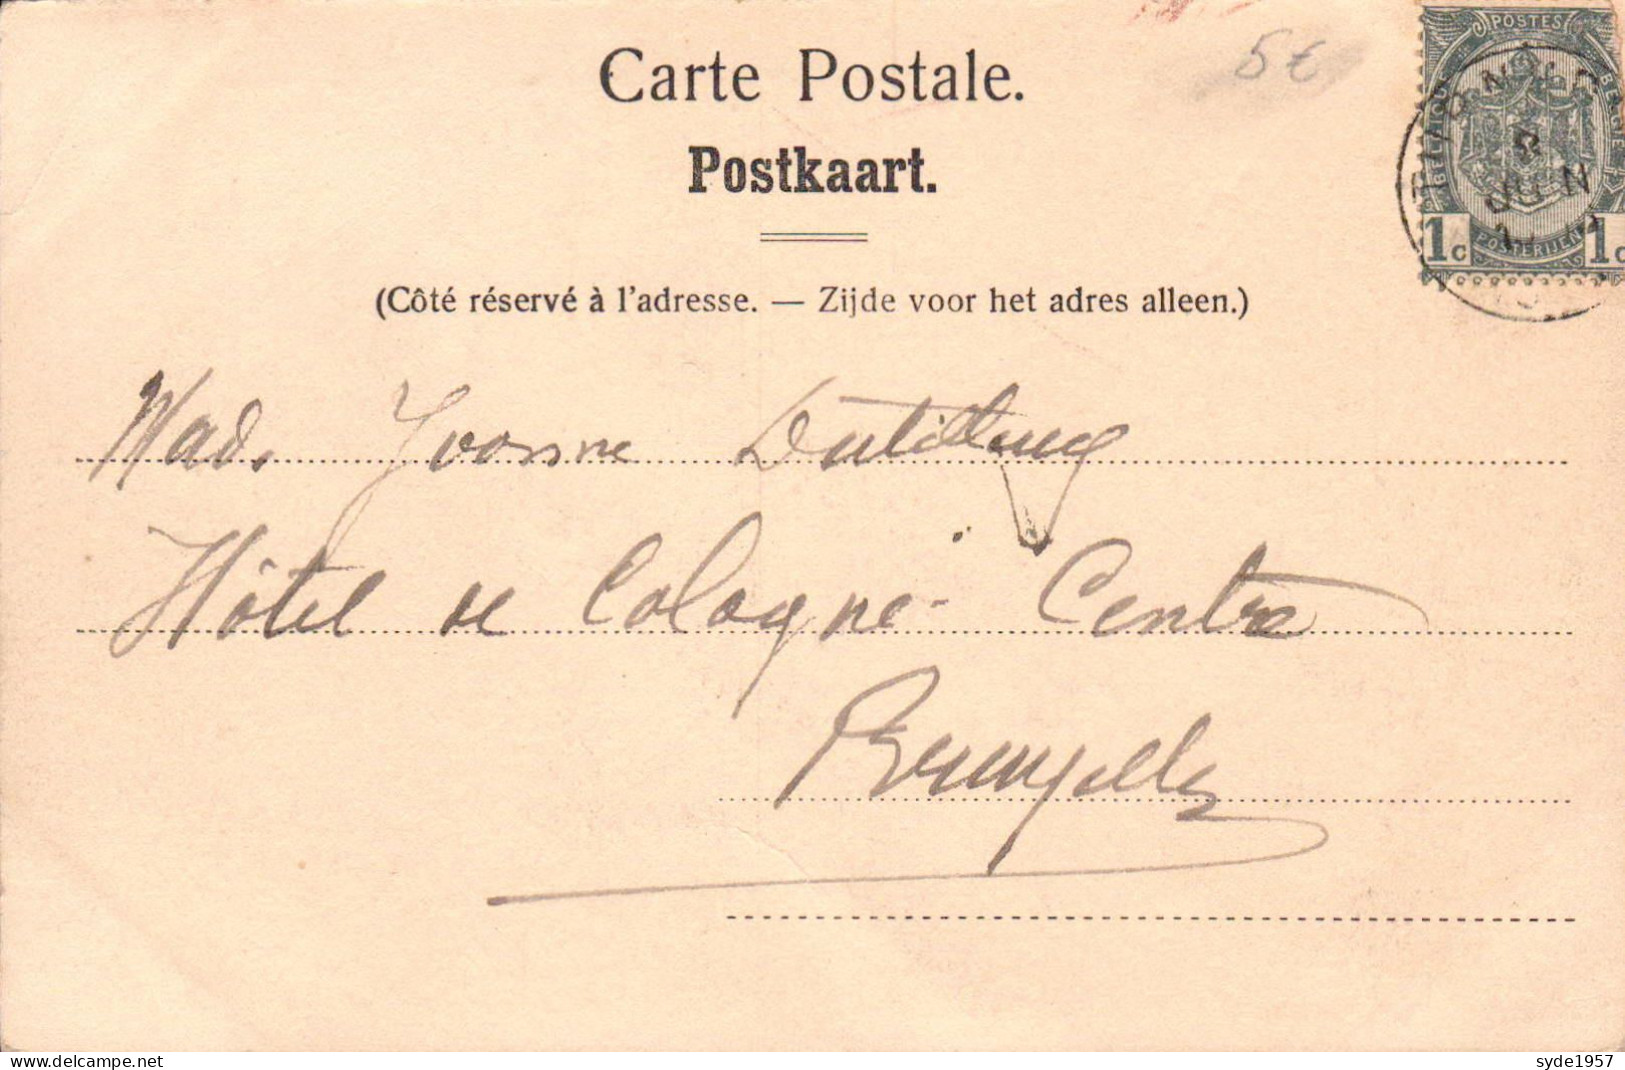 Carte Postale.
5€
Postkaart.
POSTES
BELGIQUE
BELGIE
8
JUIN
1c
POSTERIJEN
1c
(Côté réservé à l'adresse. — Zijde voor het adres alleen.)
Mad. Yvonne
Hôtel de Cologne Centre
Bruxelles
syde1957